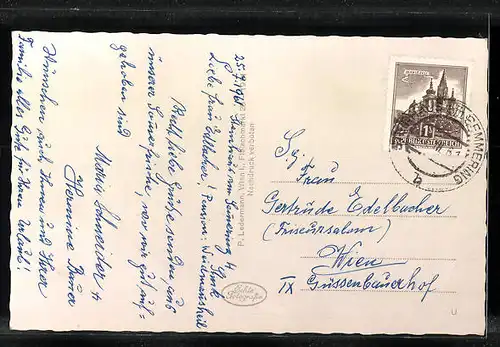 25.7.1961
Steinhaus am Semmering
Liebe Frau Edlbacher! Pension:
Recht liebe Grüße senden aus
unserer Sommerfrische, wo wir gut auf-
gehoben sind
Maria Schneider +
Hermine Bauer
Wünschen auch Ihnen und Ihrer
Familie alles Gute für Ihren Urlaub!
P. Ledermann, Wien I., Fleischmarkt
Nachdruck verboten
Echte
Fotografie
REPUBLIK ÖSTERREICH
SEMMERING
Sg.
Frau
Gertrude Edelbacher
(Friseursalon)
Wien
IX Gussenbauerhof
U